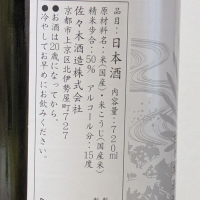 品目：日本酒　内容量：720ml
原材料名：米（国産）・米こうじ（国産米）
精米歩合：50％　アルコール分：15度
佐々木酒造株式会社
京都市上京区北伊勢屋町727
●お酒は20歳になってから。
●冷やしてお早めにお飲みください。